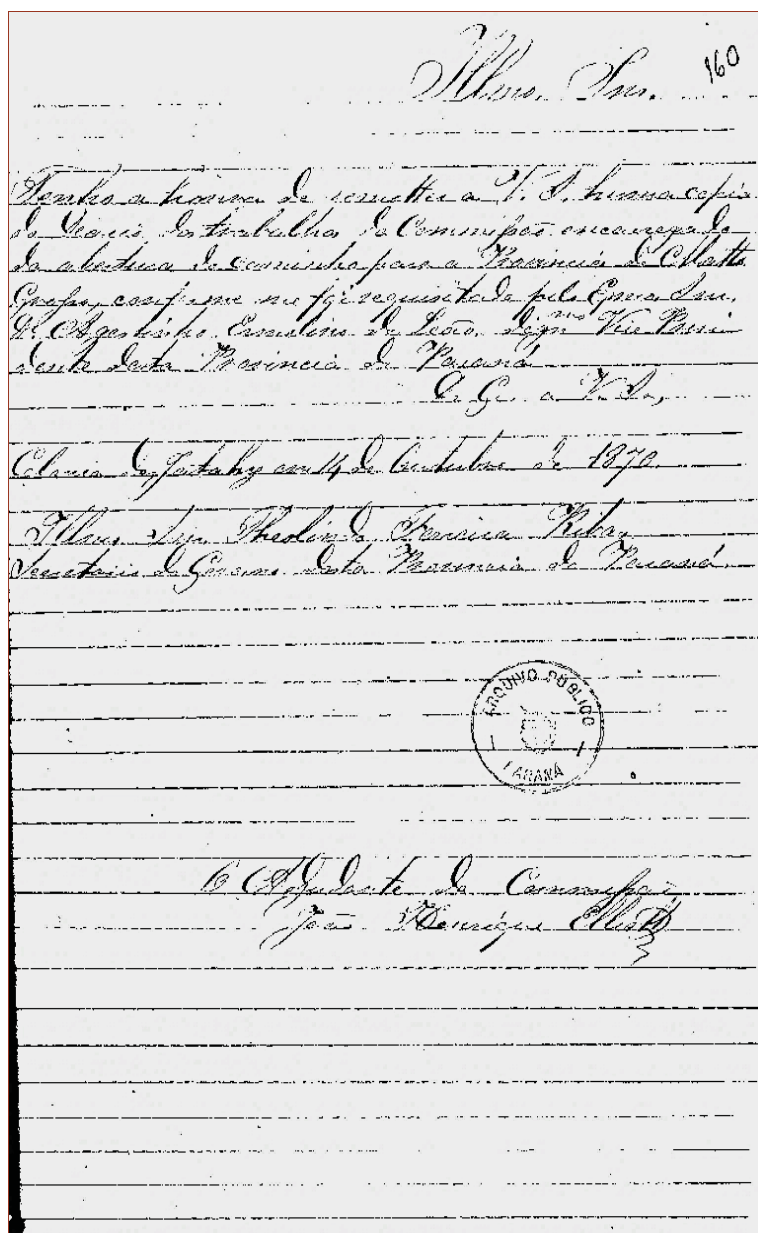 160
Illmo. Snr.
Tenho a honra de remetter a V. S. huma copia
do Diario dos trabalhos da Commissaõ encarregada
da abertura do caminho para a Provincia de Matto
Grosso, conforme me foi requisitado pelo Exmo Snr.
Dr. Agostinho Ermelino de Leão, Digno Vice Presi-
dente desta Provincia do Paraná
Ds. Ge. a V. Sa,
Colonia do Jatahy em 14 de Outubro de 1870.
Illmo Snr Theolindo Ferreira Ribas
Secretario do Governo desta Provincia do Paraná.
ARQUIVO PÚBLICO
PARANÁ
O Ajudante da Commissaõ,
João Henrique Elliott